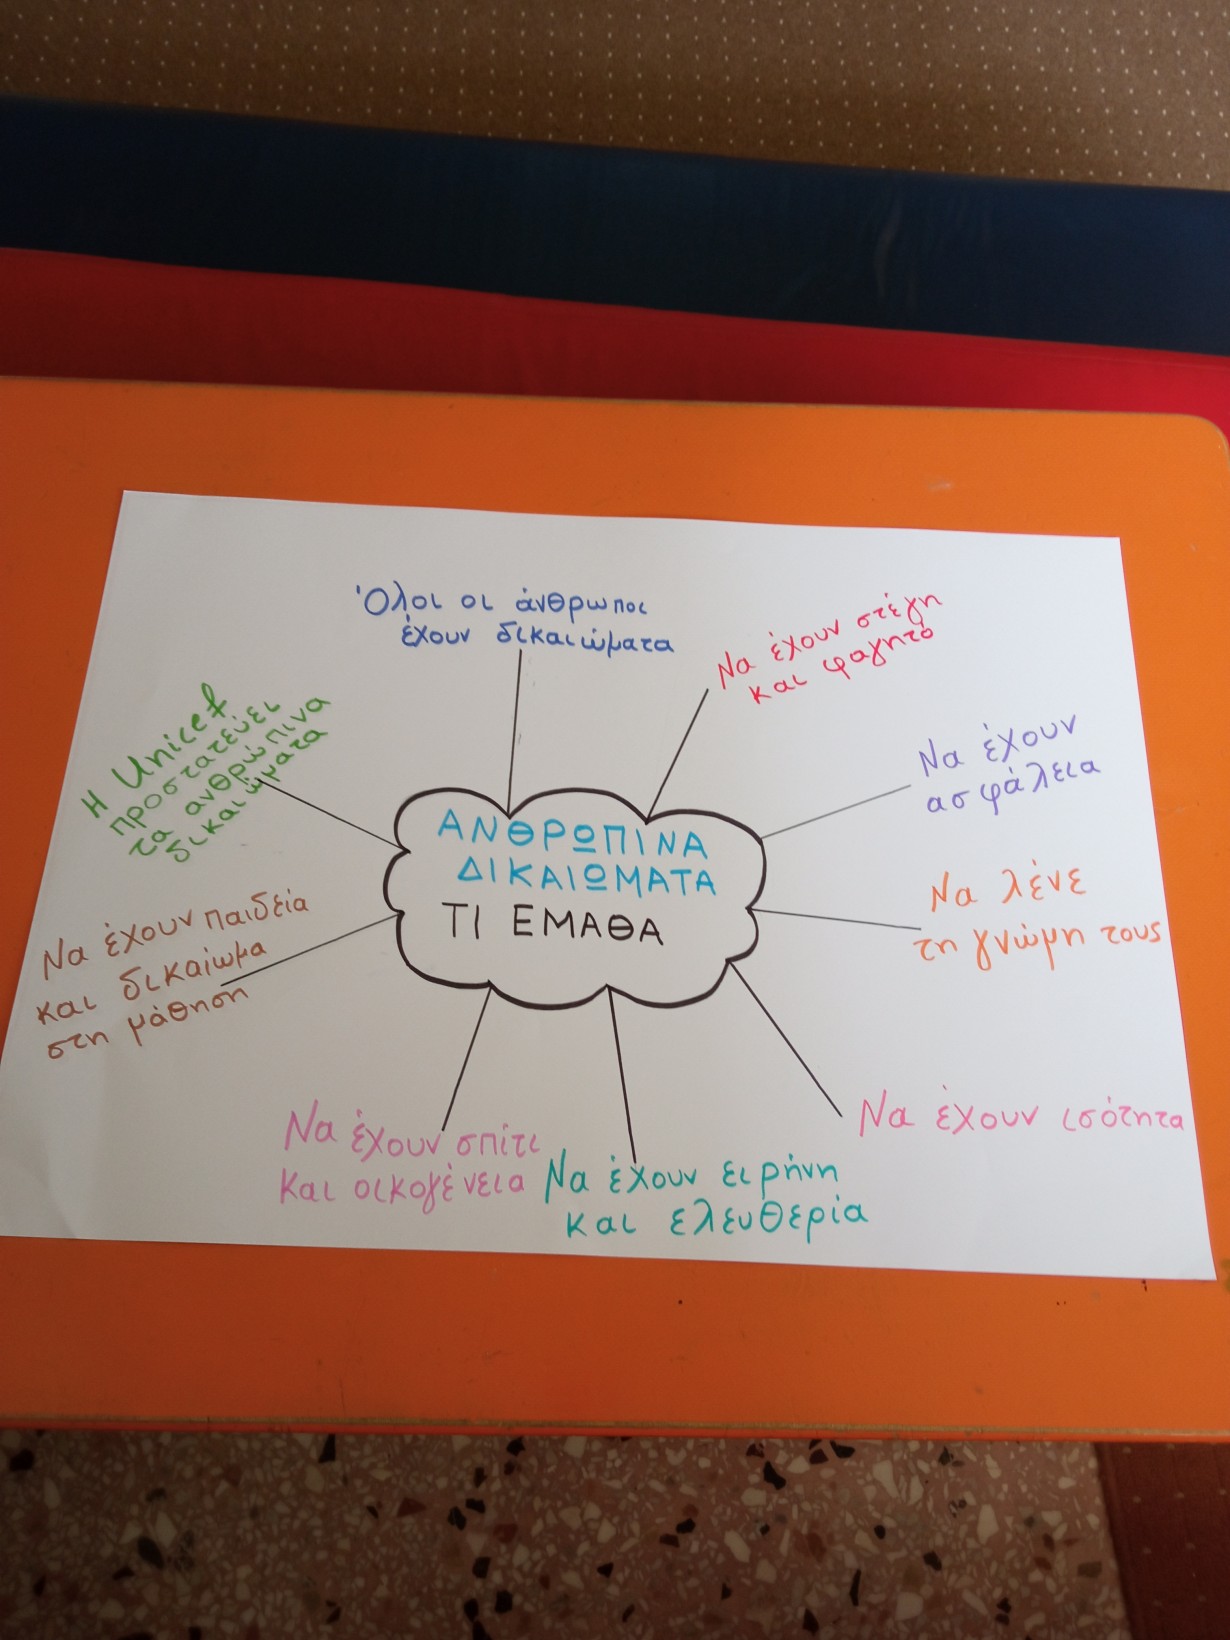 Όλοι οι άνθρωποι
έχουν δικαιώματα
Να έχουν στέγη
και φαγητό
Να έχουν
ασφάλεια
Να λένε
τη γνώμη τους
Να έχουν ισότητα
Να έχουν ειρήνη
και ελευθερία
Να έχουν σπίτι
και οικογένεια
Να έχουν παιδεία
και δικαίωμα
στη μάθηση
Η Unicef
προστατεύει
τα ανθρώπινα
δικαιώματα
ΑΝΘΡΩΠΙΝΑ
ΔΙΚΑΙΩΜΑΤΑ
ΤΙ ΕΜΑΘΑ